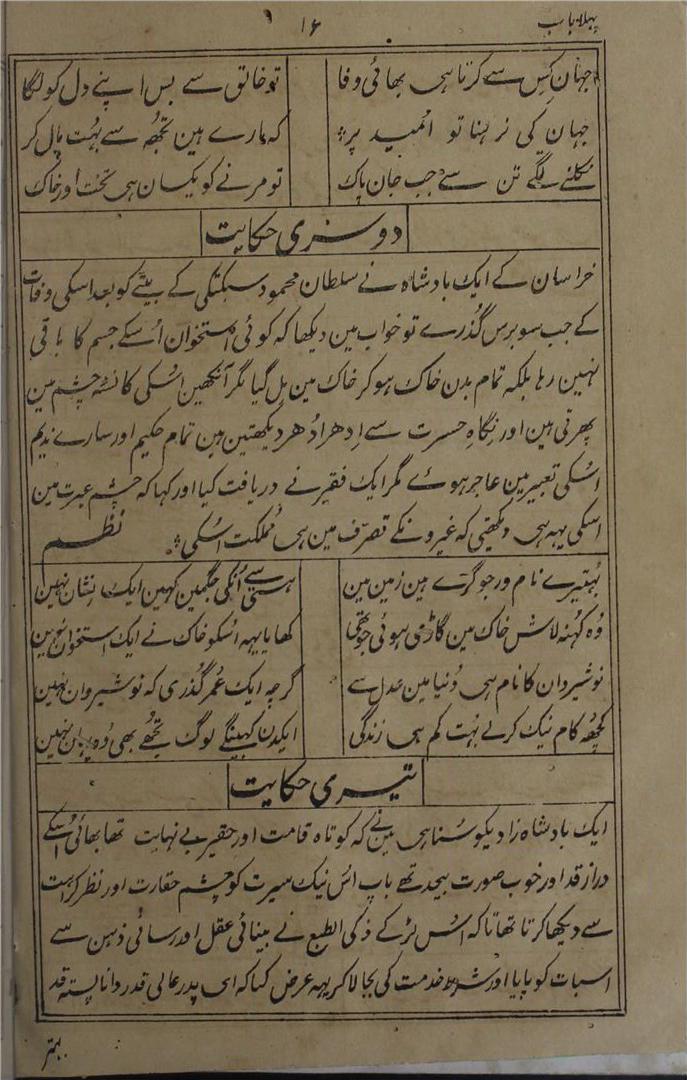 پہلا باب
۱۶
جہان کِس سے کرتا ہی بھائی وفا
تو خالق سے بس اپنے دل کو لگا
جہان کی نرہنا تو اُمید پر
کہ مارے ہین تجھ سے بہُت پال کر
نکلنے لگے تن سے جب جان پاک
تو مرنے کو یکسان ہی تخت اور خاک
دوسری حکایت
خراسان کے ایک بادشاہ نے سلطان محمود سبکتگی کے بیٹے کو بعد اسکی وفات
کے جب سو برس گذُرے تو خواب مین دیکھا کہ کوئی استخوان اُسکے جسم کا باقی
نہین رہا بلکہ تمام بدن خاک ہو کر خاک مین مِل گیا مگر آنکھین اسُکی کاسۂ چشم مین
پھرتی ہین اور نگاہِ حسرت سے اِدھر اُدھر دیکھتین ہین تمام حکیم اور سارے ندیم
اسُکی تعبیر مین عاجز ہوئے مگر ایک فقیر نے دریافت کیا اور کہا کہ چشم عبرت مین
اسکی یہہ ہی دیکھتی کہ غیرونکے تصرّف مین ہی مُملکت اسُکی
نظم
بُہتیرے نام ور جو گڑے ہین زمین مین
ہستی سے اُنکی جگمین کہین ایک نِشان نہین
وُہ کہُنہ لاش خاک مین گاڑی ہوئی جو تھی
کھایا یہہ اسُکو خاک نے ایک استخوان نہین
نوشیروان کا نام ہی دُنیا مین عدل سے
گرچہ ایک عُمر گُذری کہ نوشیروان نہین
کُچھ کام نیک کرلے بہُت کم ہی زندگی
ایکدن کہینگے لوگ تُجھے بھی وُہ یہان نہین
تیسری حکایت
ایک بادشاہ زادیکو سُنا ہی مین نے کہ کوتاہ قامت اور حقیر بے نہایت تھا بھائی اُسکے
دراز قد اور خوب صورت بیحد تھے باپ اسُ نیک سیرت کو چشم حقارت اور نظر کراہت
سے دیکھا کرتا تھا تا کہ اسُ لڑکے ذکی الطبع نے بینائی عقل اور رسائی ذہن سے
اسبات کو پایا اور شرط خدمت کی بجا لا کر یہہ عرض کیا کہ ای پدر عالی قدر دانا پستہ قد
بہتر